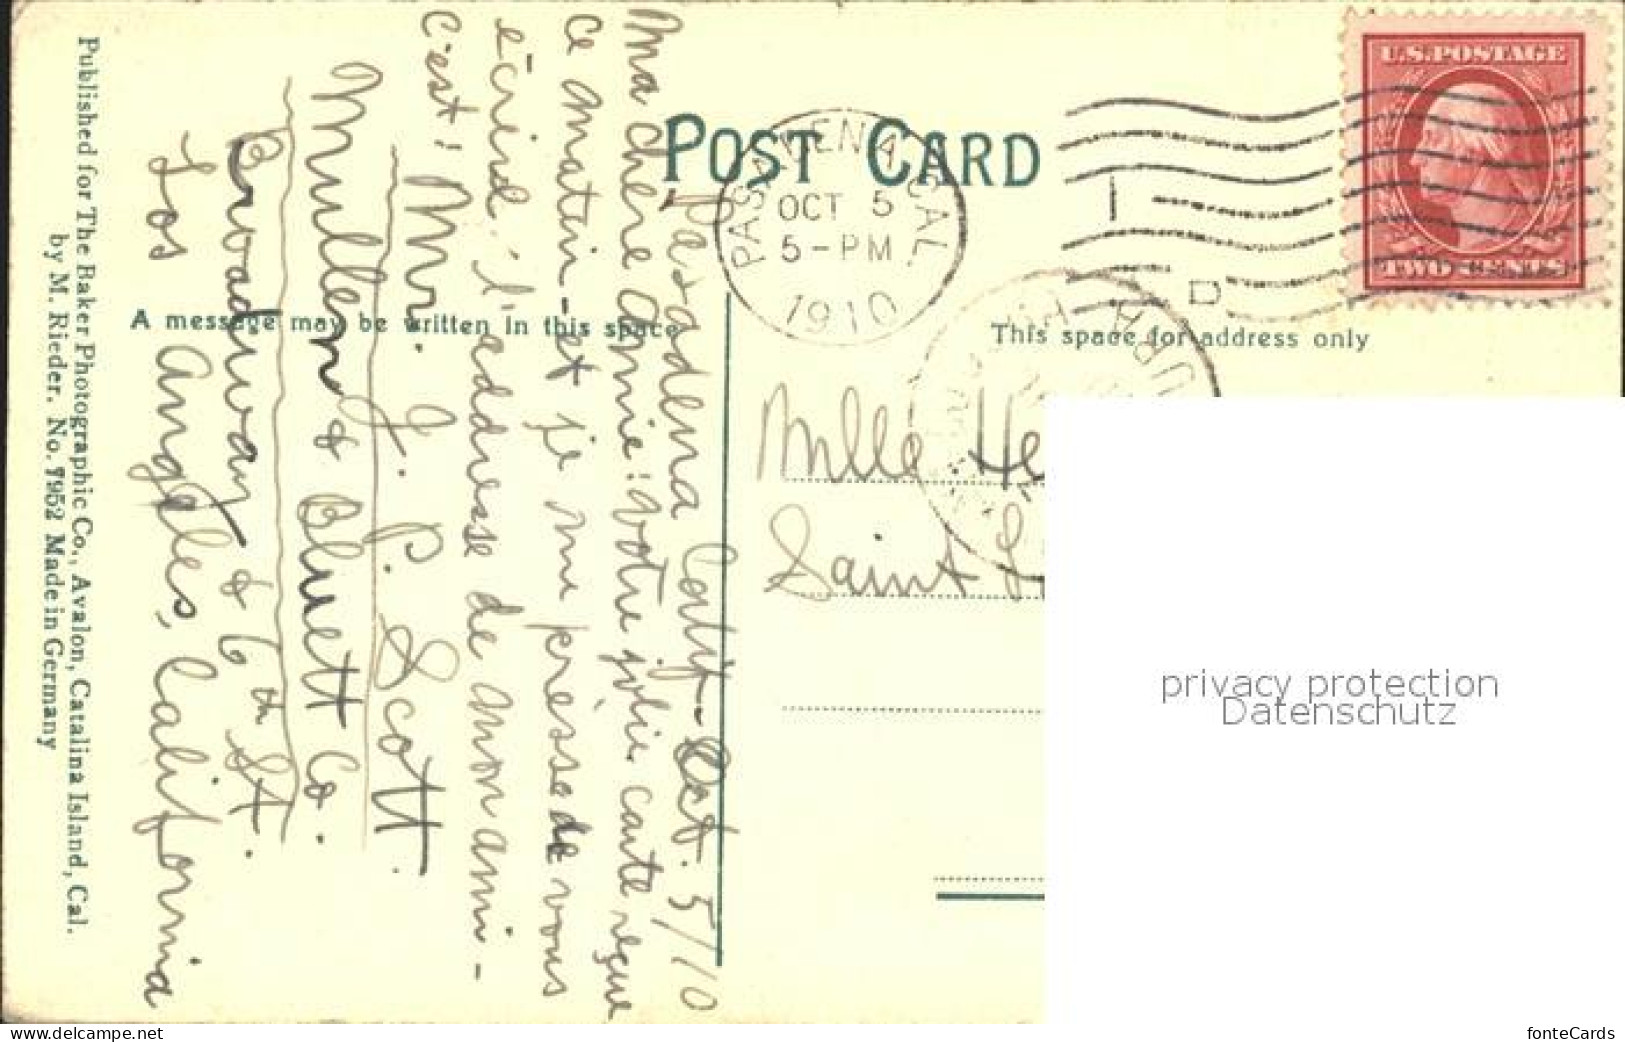 Published for The Baker Photographic Co., Avalon, Catalina Island, Cal.
by M. Rieder. No. 7952 Made in Germany
POST CARD
A message may be written in this space
This space for address only
PASADENA CAL.
OCT 5
5-PM
1910
D
U.S. POSTAGE
TWO CENTS
Pasadena Cality- Oct. 5/10
Ma chère Amie: Votre jolie carte reçue
ce matin - et je me presse de vous
écrire l'addresse de mon ami -
c'est:
Mr. J. P. Scott
Mullen & Bluett Co.
Broadway & 6th St.
Los Angeles, California
Mlle He
Saint
privacy protection
Datenschutz
www.delcampe.net
fonteCards